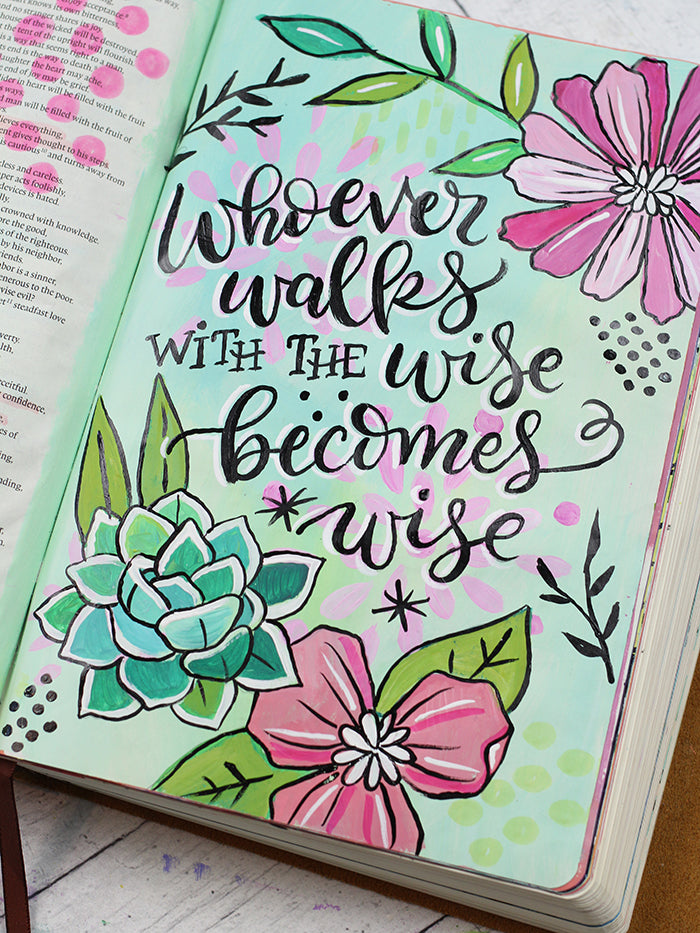 enjoy acceptance.
house of the wicked will be destroyed,
tent of the upright will flourish.
is a way that seems right to a man,
its end is the way
laughter the heart may ache,
end of joy may be grief.
in heart will be filled with the fruit
ways,
man will be filled with the fruit of
believes everything,
gives thought to his steps.
is cautious and turns away from
reckless and careless.
acts foolishly,
devices is hated.
crowned with knowledge.
the good,
of the righteous.
by his neighbor,
friends.
is a sinner,
generous to the poor.
evil?
steadfast love
confidence,
Whoever
walks
with the wise
becomes
wise